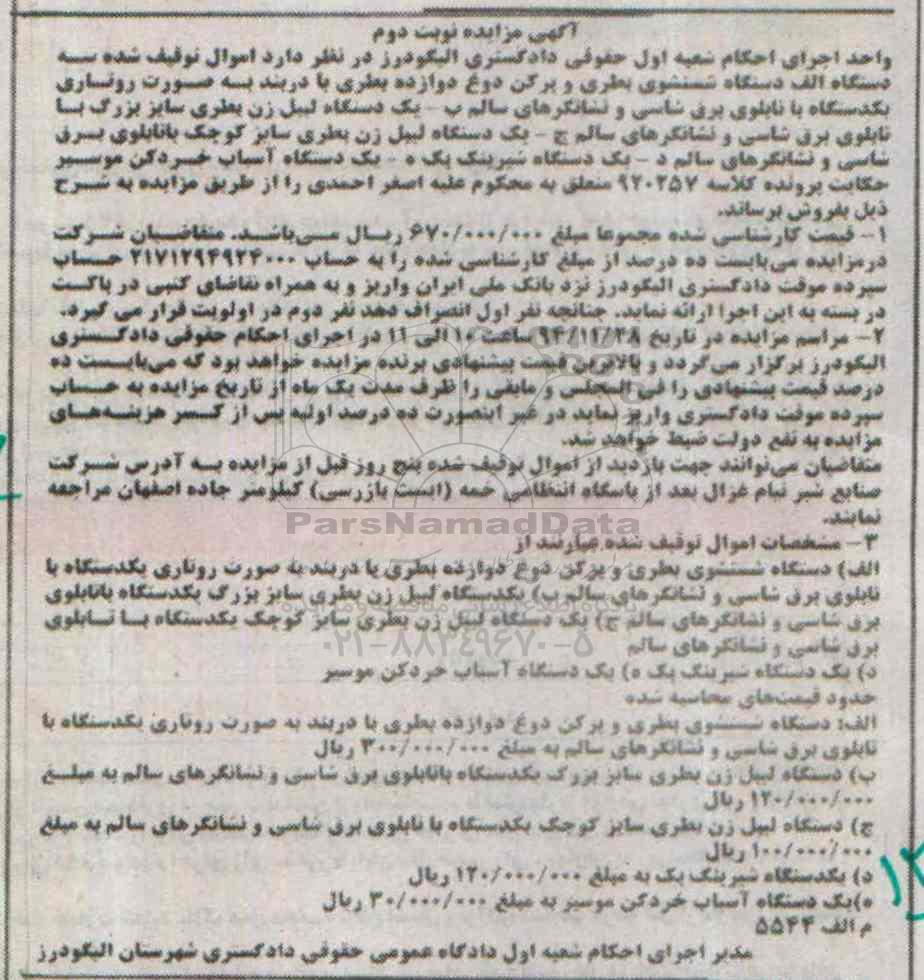 آگهی مزایده نوبت دوم
واحد اجرای احکام شعبه اول حقوقی دادگستری الیگودرز در نظر دارد اموال توقیف شده سه
دستگاه الف دستگاه شستشوی بطری و پرکن دوغ دوازده بطری با دربند به صورت روتاری
یکدستگاه با تابلوی برق شاسی و نشانگرهای سالم ب - یک دستگاه لیبل زن بطری سایز بزرگ با
تابلوی برق شاسی و نشانگرهای سالم ج - یک دستگاه لیبل زن بطری سایز کوچک باتابلوی برق
شاسی و نشانگرهای سالم د - یک دستگاه شیرینک پک ه - یک دستگاه آسیاب خردکن موسیر
حکایت پرونده کلاسه ۹۲۰۲۵۷ متعلق به محکوم علیه اصغر احمدی را از طریق مزایده به شرح
ذیل بفروش برساند.
۱- قیمت کارشناسی شده مجموعا مبلغ ۶۷۰/۰۰۰/۰۰۰ ریال می‌باشد. متقاضیان شرکت
درمزایده می‌بایست ده درصد از مبلغ کارشناسی شده را به حساب ۲۱۷۱۲۹۴۹۲۴۰۰۰ حساب
سپرده موقت دادگستری الیگودرز نزد بانک ملی ایران واریز و به همراه تقاضای کتبی در پاکت
در بسته به این اجرا ارائه نماید. چنانچه نفر اول انصراف دهد نفر دوم در اولویت قرار می گیرد.
۲- مراسم مزایده در تاریخ ۹۴/۱۱/۲۸ ساعت ۱۰ الی ۱۱ در اجرای احکام حقوقی دادگستری
الیگودرز برگزار می‌گردد و بالاترین قیمت پیشنهادی برنده مزایده خواهد بود که می‌بایست ده
درصد قیمت پیشنهادی را فی المجلس و مابقی را ظرف مدت یک ماه از تاریخ مزایده به حساب
سپرده موقت دادگستری واریز نماید در غیر اینصورت ده درصد اولیه پس از کسر هزینه‌های
مزایده به نفع دولت ضبط خواهد شد.
متقاضیان می‌توانند جهت بازدید از اموال توقیف شده پنج روز قبل از مزایده به آدرس شرکت
صنایع شیر تیام غزال بعد از پاسگاه انتظامی خمه (ایست بازرسی) کیلومتر جاده اصفهان مراجعه
نمایند.
ParsNamadData
۳- مشخصات اموال توقیف شده عبارتند از
الف) دستگاه شستشوی بطری و پرکن دوغ دوازده بطری با دربند به صورت روتاری یکدستگاه با
تابلوی برق شاسی و نشانگرهای سالم ب) یکدستگاه لیبل زن بطری سایز بزرگ یکدستگاه باتابلوی
برق شاسی و نشانگرهای سالم ج) یک دستگاه لیبل زن بطری سایز کوچک یکدستگاه با تابلوی
برق شاسی و نشانگرهای سالم
۰۲۱-۸۸۳۴۹۶۷۰-۵
د) یک دستگاه شیرینک پک ه) یک دستگاه آسیاب خردکن موسیر
حدود قیمت‌های محاسبه شده
الف: دستگاه شستشوی بطری و پرکن دوغ دوازده بطری با دربند به صورت روتاری یکدستگاه با
تابلوی برق شاسی و نشانگرهای سالم به مبلغ ۳۰۰/۰۰۰/۰۰۰ ریال
ب) دستگاه لیبل زن بطری سایز بزرگ یکدستگاه باتابلوی برق شاسی و نشانگرهای سالم به مبلغ
۱۲۰/۰۰۰/۰۰۰ ریال
ج) دستگاه لیبل زن بطری سایز کوچک یکدستگاه با تابلوی برق شاسی و نشانگرهای سالم به مبلغ
۱۰۰/۰۰۰/۰۰۰ ریال
د) یکدستگاه شیرینک پک به مبلغ ۱۲۰/۰۰۰/۰۰۰ ریال
ه)یک دستگاه آسیاب خردکن موسیر به مبلغ ۳۰/۰۰۰/۰۰۰ ریال
م الف ۵۵۴۴
مدیر اجرای احکام شعبه اول دادگاه عمومی حقوقی دادگستری شهرستان الیگودرز